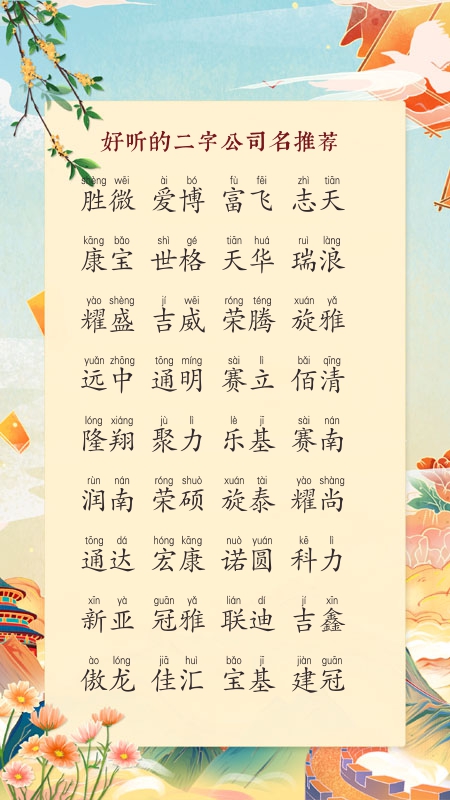 好听的二字公司名推荐
shèng wēi ài bó fù fēi zhì tiān
胜微 爱博 富飞 志天
kāng bǎo shì gé tiān huá ruì làng
康宝 世格 天华 瑞浪
yào shèng jí wēi róng téng xuán yǎ
耀盛 吉威 荣腾 旋雅
yuǎn zhōng tōng míng sài lì bǎi qīng
远中 通明 赛立 佰清
lóng xiáng jù lì lè jī sài nán
隆翔 聚力 乐基 赛南
rùn nán róng shuò xuán tài yào shàng
润南 荣硕 旋泰 耀尚
tōng dá hóng kāng nuò yuán kē lì
通达 宏康 诺圆 科力
xīn yà guān yǎ lián dí jí xīn
新亚 冠雅 联迪 吉鑫
ào lóng jiā huì bǎo jī jiàn guān
傲龙 佳汇 宝基 建冠